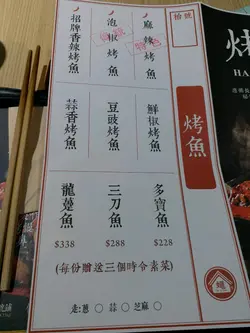 枱號
烤魚
麻辣烤魚
泡椒烤魚
招牌香辣烤魚
鮮椒烤魚
豆豉烤魚
蒜香烤魚
多寶魚
$228
三刀魚
$288
龍躉魚
$338
(每份贈送三個時令素菜)
走:蔥 ○ 蒜 ○ 芝麻 ○
HA